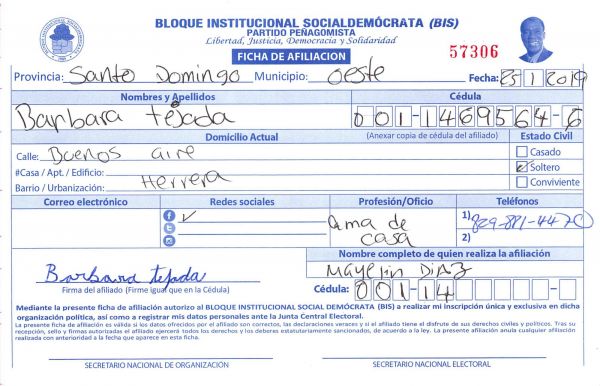 BLOQUE INSTITUCIONAL SOCIALDEMÓCRATA (BIS)
PARTIDO PEÑAGOMISTA
Libertad, Justicia, Democracia y Solidaridad
FICHA DE AFILIACION
57306
Provincia: Santo Domingo Municipio: Oeste Fecha: 25/1/2019
Nombres y Apellidos Cédula
Barbara tejada 001-1469564-6
Domicilio Actual (Anexar copia de cédula del afiliado) Estado Civil
Calle: Buenos aire Casado
#Casa / Apt. / Edificio: Soltero
Barrio / Urbanización: Herrera Conviviente
Correo electrónico Redes sociales Profesión/Oficio Teléfonos
Ama de casa 1) 829-881-4470
2)
Nombre completo de quien realiza la afiliación
Barbara tejada Mayelin Diaz
Firma del afiliado (Firme igual que en la Cédula) Cédula: 001-14
Mediante la presente ficha de afiliación autorizo al BLOQUE INSTITUCIONAL SOCIAL DEMÓCRATA (BIS) a realizar mi inscripción única y exclusiva en dicha
organización política, así como a registrar mis datos personales ante la Junta Central Electoral.
La presente ficha de afiliación es válida si los datos ofrecidos por el afiliado son correctos, las declaraciones veraces y si el afiliado tiene el disfrute de sus derechos civiles y políticos. Tras su
recepción, sello y firmas autorizadas el afiliado ejercerá todos los derechos y los deberes estatutariamente sancionados, de acuerdo a la ley. La presente afiliación anula cualquier afiliación
realizada con anterioridad a la fecha que aparece en esta ficha.
SECRETARIO NACIONAL DE ORGANIZACIÓN SECRETARIO NACIONAL ELECTORAL